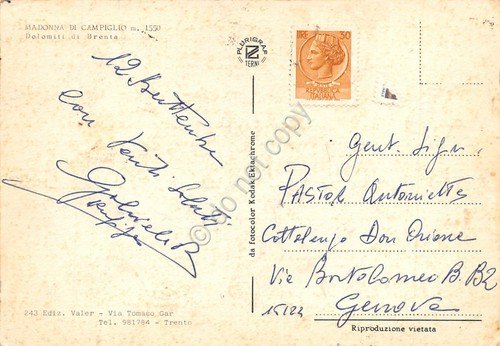 MADONNA DI CAMPIGLIO m. 1550
Dolomiti di Brenta
12 Settembre
con tanti saluti
Gabriele B.
243 Ediz. Valer - Via Tomaso Gar
Tel. 981784 - Trento
PLURIGRAF
TERNI
da fotocolor Kodak Ektachrome
30
REPUBBLICA
ITALIANA
do not copy
Gent. Sign.
PASTOR Antonietta
Cottolengo Don Orione
Via Bortolomeo B. B2
15122 Genova
Riproduzione vietata